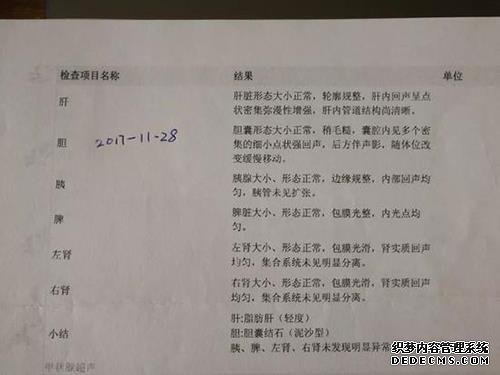 检查项目名称 结果 单位
肝 肝脏形态大小正常，轮廓规整，肝内回声呈点
状密集弥漫性增强，肝内管道结构尚清晰。
胆 2017-11-28 胆囊形态大小正常，稍毛糙，囊腔内见多个密
集的细小点状强回声，后方伴声影，随体位改
变缓慢移动。
胰 胰腺大小、形态正常，边缘规整，内部回声均
匀，胰管未见扩张。
脾 脾脏大小、形态正常，包膜光整，内光点均
匀。
左肾 左肾大小、形态正常，包膜光滑，肾实质回声
均匀，集合系统未见明显分离。
右肾 右肾大小、形态正常，包膜光滑，肾实质回声
均匀，集合系统未见明显分离。
肝:脂肪肝（轻度）
小结 胆:胆囊结石（泥沙型）
胰、脾、左肾、右肾未发现明显异常
甲状腺超声
织梦内容管理系统
DEDECMS.COM